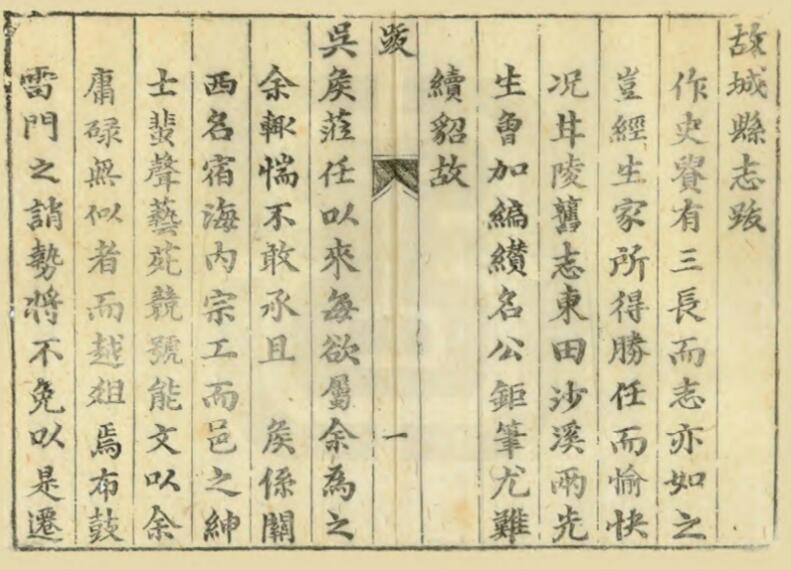 故城縣志跋
作史貴有三長而志亦如之
豈經生家所得勝任而愉快
況甘陵舊志東田沙溪兩先
生曾加編纘名公鉅筆尤難
續貂故
跋
一
吳矦蒞任以來每欲屬余為之
余輙惴不敢承且 矦係關
西名宿海內宗工而邑之紳
士蜚聲藝苑競號能文以余
庸碌無似者而越俎焉布鼓
雷門之誚勢將不免以是遷